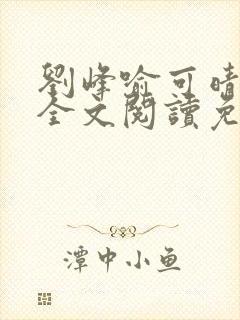 劉峰喻可晴
全文閱讀免
潭中小鱼